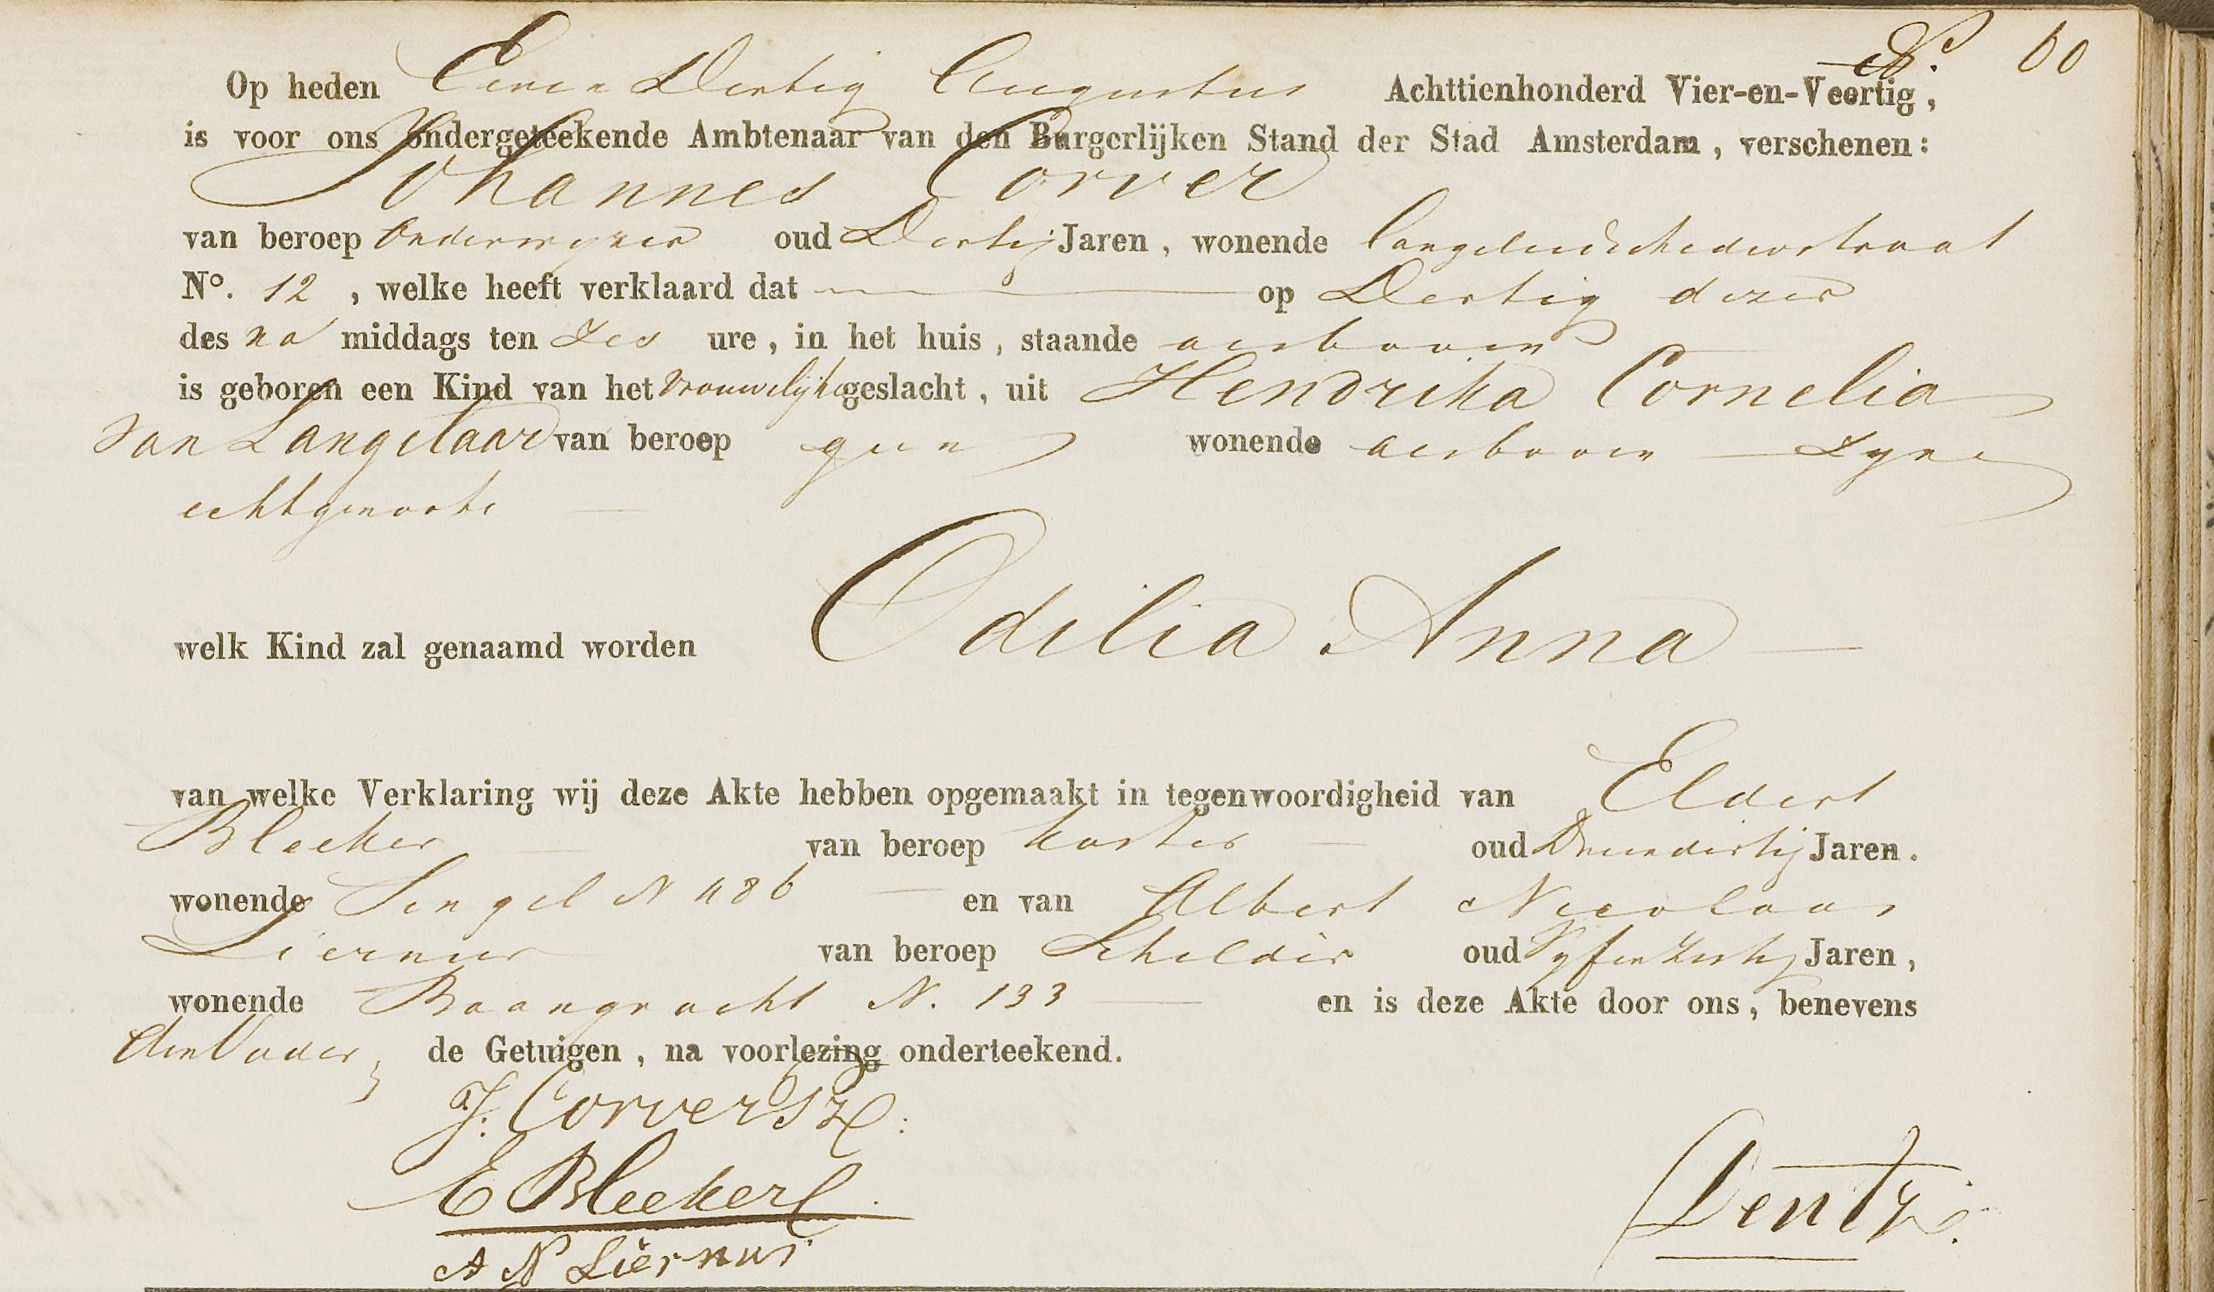 No. 60
Op heden Een en Dertig Augustus Achttienhonderd Vier-en-Veertig,
is voor ons ondergeteekende Ambtenaar van den Burgerlijken Stand der Stad Amsterdam, verschenen:
Johannes Corver
van beroep Onderwyzer oud Dertig Jaren, wonende Langeleidschedwstraat
No. 12, welke heeft verklaard dat — op Dertig dezer
des na middags ten Zes ure, in het huis, staande alsboven
is geboren een Kind van het vrouwelijke geslacht, uit Hendrika Cornelia
van Langelaar van beroep geen wonende alsboven — Zyne
echtgenoote —
welk Kind zal genaamd worden Odilia Anna —
van welke Verklaring wij deze Akte hebben opgemaakt in tegenwoordigheid van Eldert
Bleeker — van beroep koster — oud Drieendertig Jaren.
wonende Singel N 486 — en van Albert Nicolaas
Liernur van beroep Schilder oud Vyfendertig Jaren,
wonende Baangracht N. 133 — en is deze Akte door ons, benevens
den Vader, de Getuigen, na voorlezing onderteekend.
J. Corver SZ:
E Bleeker
A N Liernur
Dentz